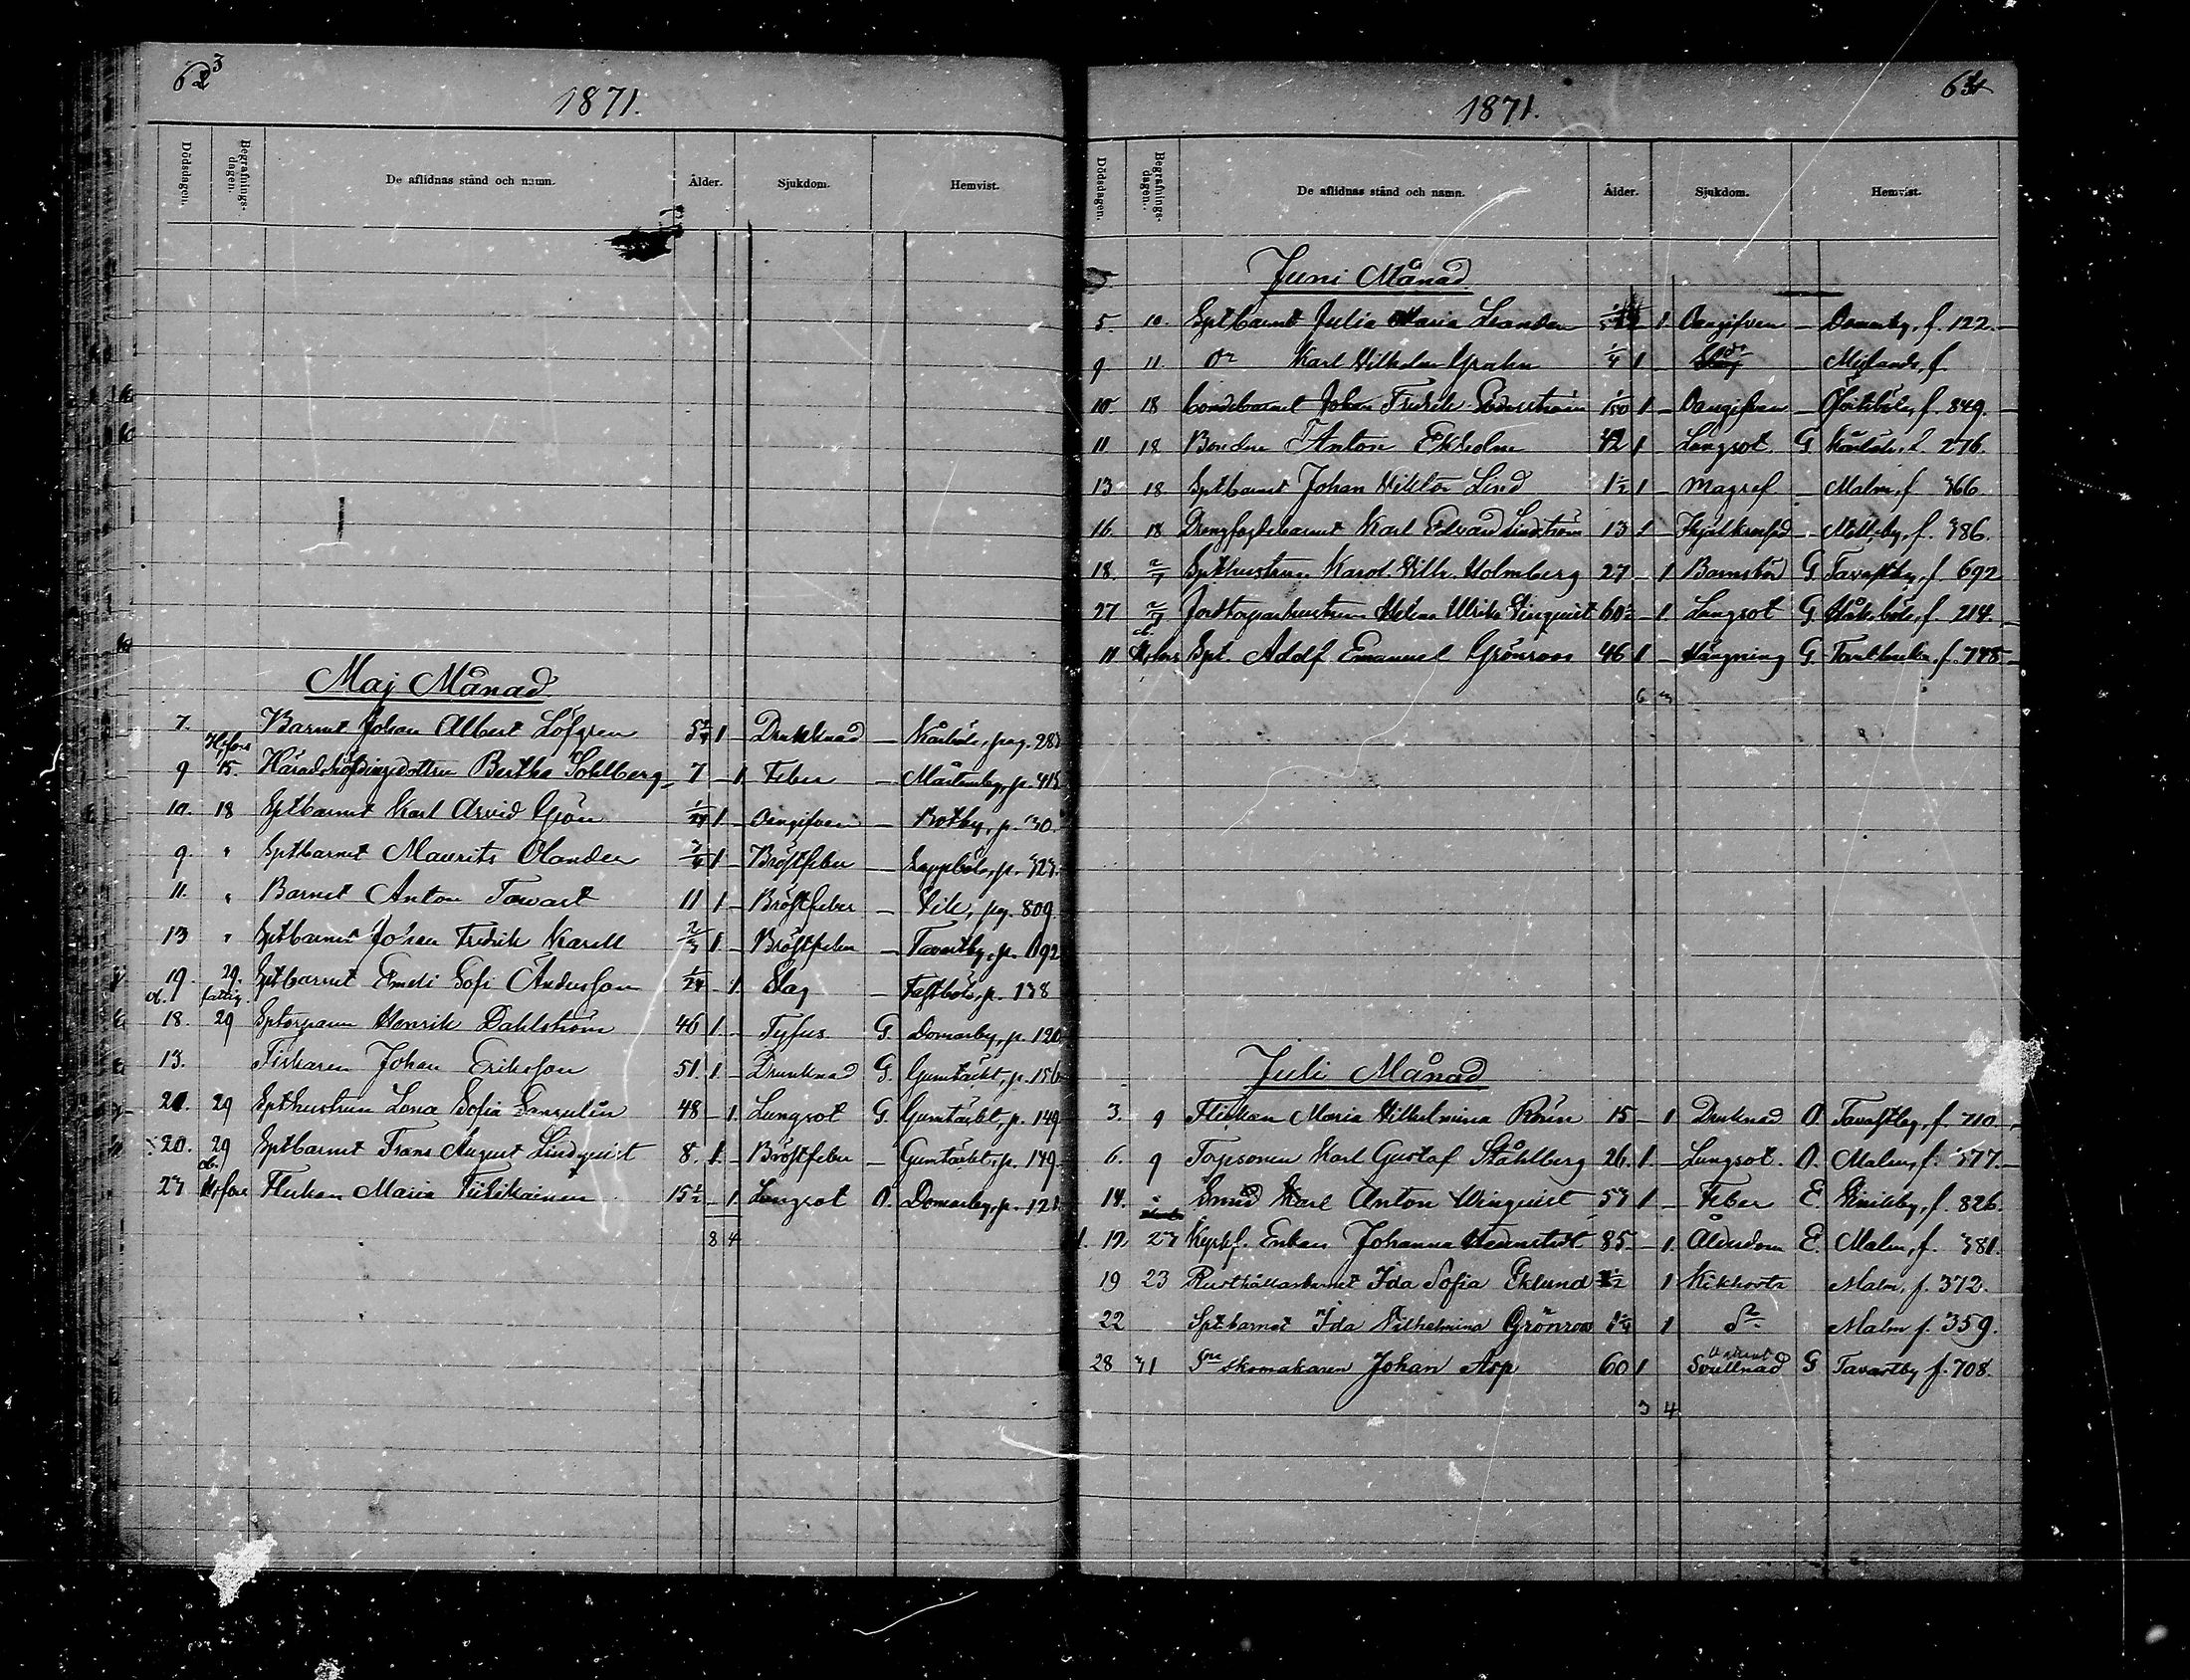 623
1871.
Dödsdagen. Begrafnings-dagen. De aflidnas stånd och namn. Ålder. Sjukdom. Hemvist.
Maj Månad
7. Barnet Johan Albert Löfgren 5 3/4 1 Drunknad – Kårböle, pag. 283
9 H:fors 15. Häradshöfdingedottren Bertha Sohlberg 7 – 1 Feber – Mårtensby, p. 413
10. 18 Sptbarnet Karl Arvid Grön 1/24 1 – Oangifven – Botby, p. 30.
9. " Sptbarnet Maurits Olander 3/4 1 – Bröstfeber – Seppböle, p. 323.
11. " Barnet Anton Tawast 11 1 – Bröstfeber – Dik, pg. 809.
13 " Sptbarnet Johan Fredrik Karell 2/3 1. – Bröstfeber – Tavastby, p. 692
19. 29. fattig. Sptbarnet Emeli Sofi Andersson 1/24 – 1. Slag – Fastböle, p. 138
18. 29 Sptorparen Henrik Dahlström 46 1. – Tyfus. G. Domarby, p. 120.
13. Fiskaren Johan Eriksson 51. 1. – Drunknad G. Gumtäckt, p. 156
21. 29 Spthustrun Lovisa Sofia 48 – 1. Lungsot G. Gumtäckt, p. 149
20. 29 Sptbarnet Frans August Lindqvist 8. 1. – Bröstfeber – Gumtäckt, p. 149.
27 H:fors Flickan Maria 15 1/2 – 1. Lungsot O. Domarby, p. 121
8 4
64
1871.
Dödsdagen. Begrafnings-dagen. De aflidnas stånd och namn. Ålder. Sjukdom. Hemvist.
Juni Månad
5. 10. Sptbarnet Julia Maria Leander – 1 Oangifven – Domarby, f. 122. –
9 11. Do Karl Vilhelm Grahn 1/4 1 – do – Mejlans, f.
10. 18 Bondebarnet Johan Fredrik Söderström 1/50 1 – Oangifven – f. 849. –
11 18 Bonden Anton Ekholm 42 1 – Lungsot. G Kårböle, f. 276.
13 18. Sptbarnet Johan Viktor Lind 1 1/2 1 – Magref – Malm, f 366.
16. 18 Drengfogdebarnet Karl Edvard Lindström 13 1 – – f. 386.
18. 2/7 Spthustrun Karol. Vilh. Holmberg 27 – 1 Barnsbörd G. Tavastby, f. 692
27 2/7 Jordtorparhustrun Helena Ulrika Winqvist 60 1/2 – 1. Lungsot G. Håkansböle, f. 214. –
11 H:fors Spt. Adolf Emanuel Grönroos 46 1 – Hängning G. f. 778 –
6 3
Juli Månad
3. 9 Flickan Maria Vilhelmina Rosén 15 – 1 Drunknad O. Tavastby, f. 710 –
6. 9 Torpsonen Karl Gustaf Ståhlberg 26. 1. – Lungsot. O. Malm, f. 377. –
14. " Smed Karl Anton Winqvist 57 1 – Feber E. f. 826.
17. 23 Kyrkf. Enkan Johanna Hedenstedt 85 – 1. Ålderdom E. Malm, f. 381.
19 23 Rusthållarbarnet Ida Sofia Eklund 1/2 1 Kikhosta Malm, f. 372.
22 Sptbarnet Ida Vilhelmina Grönroos 1 1/4 1 Do Malm f. 359.
28 31 Sne skomakaren Johan Asp 60 1 Svullnad G Tavastby f. 708.
3 4